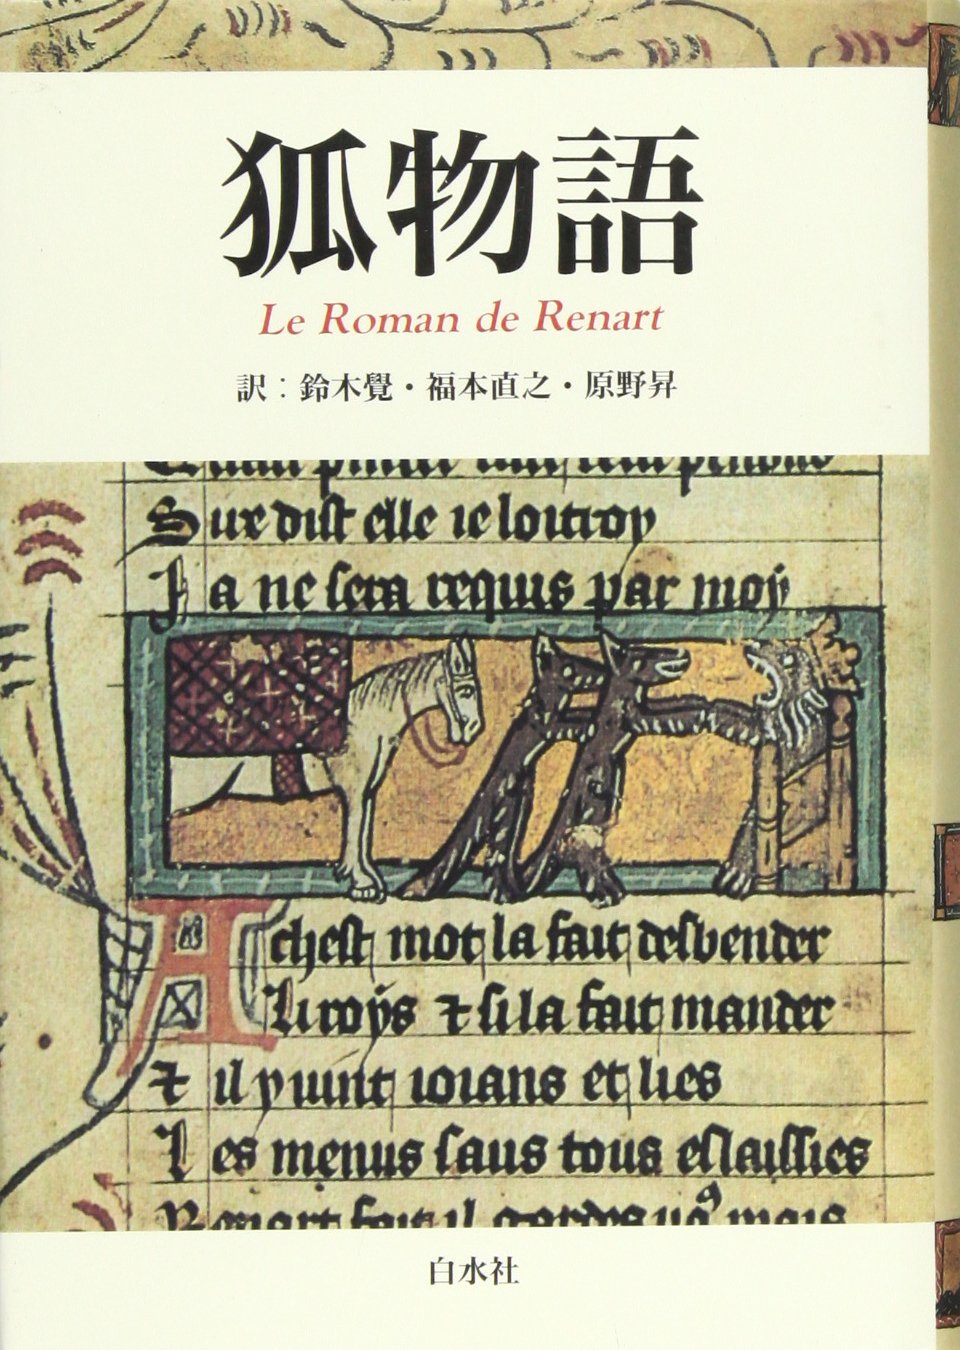 狐物語
Le Roman de Renart
訳：鈴木覺・福本直之・原野昇
Sire dist elle ie loitroy
Ja ne sera requis par moÿ
A chest mot la fait desvender
Li roÿs ⁊ si la fait mander
⁊ il y uint ioians et lies
Les menus saus tous eslaissies
白水社